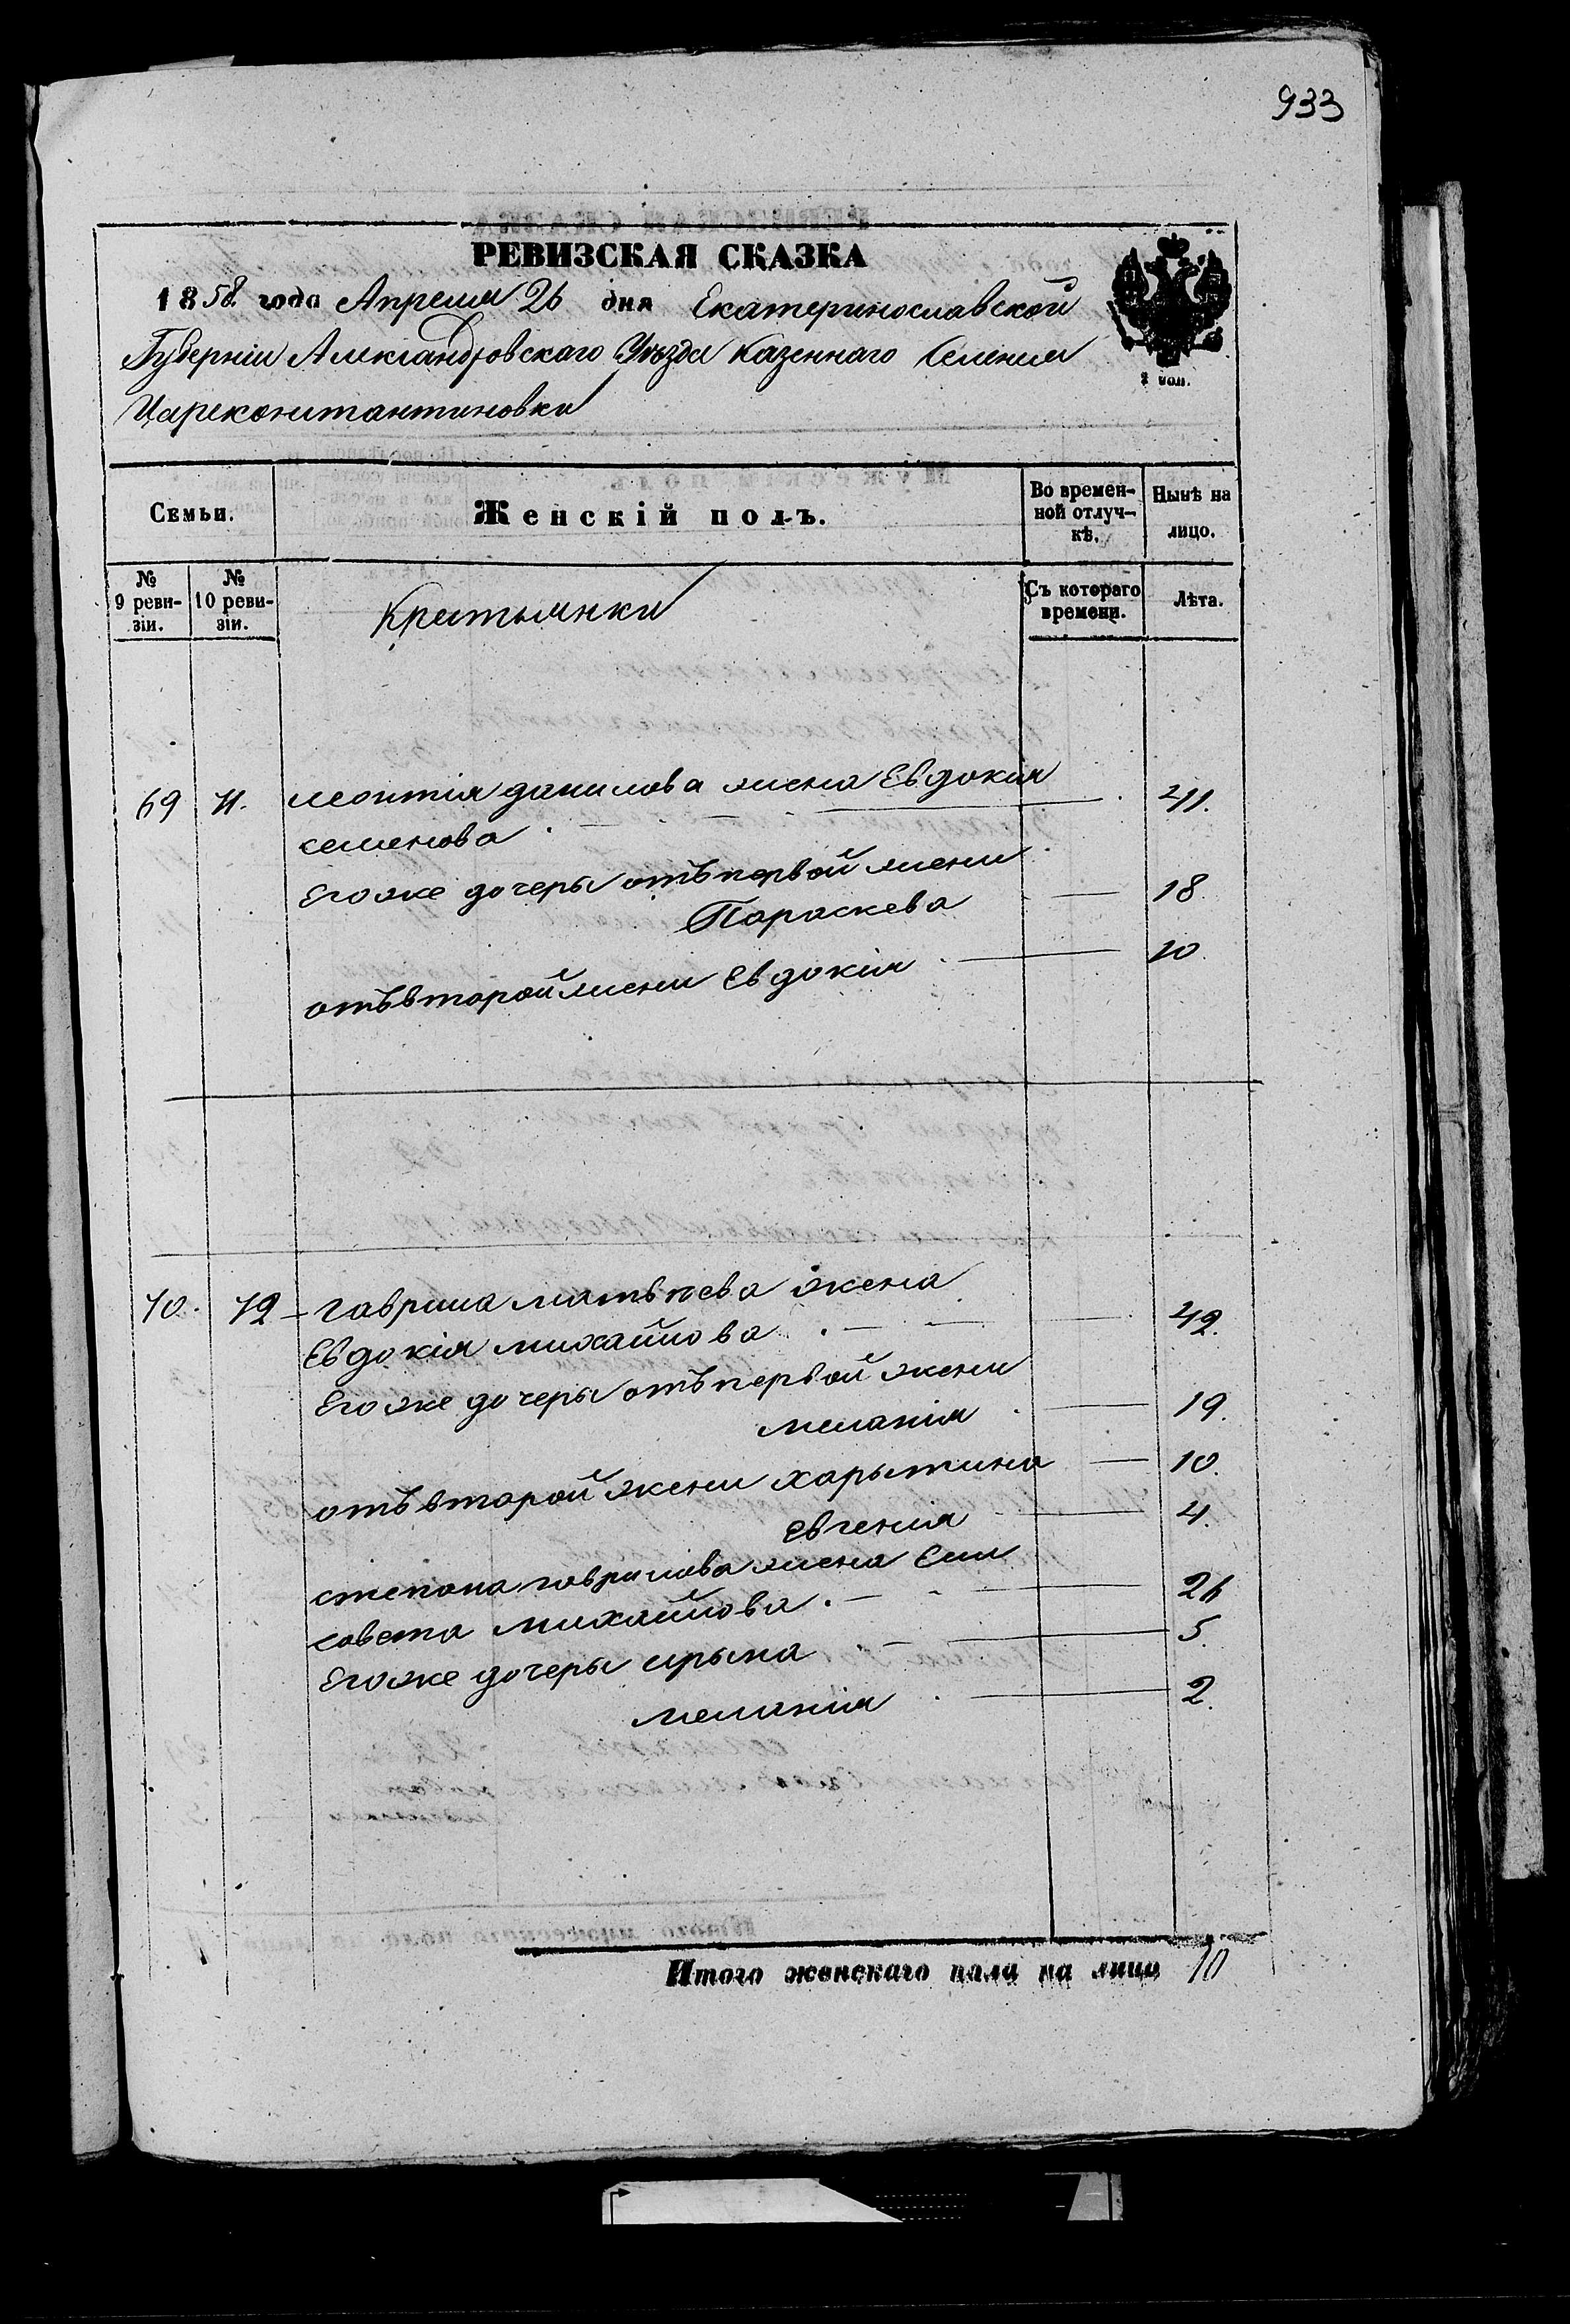 933
РЕВИЗСКАЯ СКАЗКА
1858 года Апреля 26 дня Екатеринославской
Губерніи Александровскаго Уѣзда Казеннаго Селенія
Цареконстантиновки
2 коп.
Семьи. Женскій полъ. Во времен- Нынѣ на
ной отлуч- лицо.
кѣ.
№ № Съ котораго Лѣта.
9 реви- 10 реви- времени.
зіи. зіи.
Крестьянки
69 71. леонтія данилова жена Евдокія
семенова 41.
Егоже дочеры отъ первой жены
Параскева 18
отъ второй жены Евдокія 10
70. 72 гаврила матвѣева жена
Евдокія михайлова 42.
Егоже дочеры отъ первой жены
меланія 19.
отъ второй жены харытина 10.
Евгенія 4.
степана гаврилова жена Ели
савета михайлова. 26
Егоже дочеры ирына 5.
меланія 2.
Итого женскаго пола на лицо 10